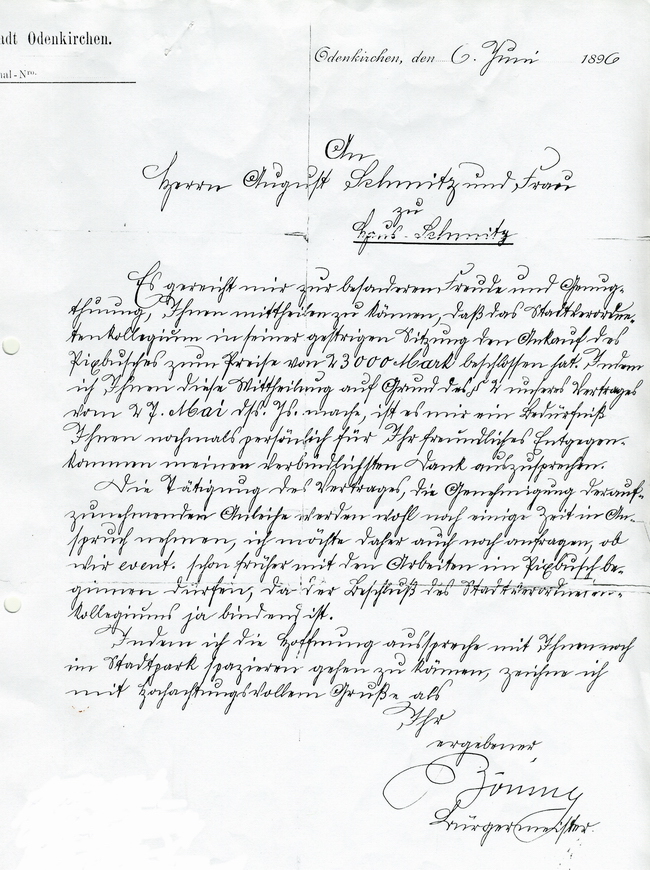 adt Odenkirchen.
nal-Nro.
Odenkirchen, den 6. Juni 1896
An
Herrn August Schmitz und Frau
zu
Haus-Schmitz
Es gereicht mir zur besonderen Freude und Genug-
thuung, Ihnen mittheilen zu können, daß das Stadtverordne-
tenkollegium in seiner gestrigen Sitzung den Ankauf des
Pixbusches zum Preise von 23000 Mark beschlossen hat. Indem
ich Ihnen diese Mittheilung auf Grund des § 2 unseres Vertrages
vom 27. Mai ds. Js. mache, ist es mir ein Bedürfniß
Ihnen nochmals persönlich für Ihr freundliches Entgegen-
kommen meinen verbindlichsten Dank auszusprechen.
Die Tätigung des Vertrages, die Genehmigung der auf-
zunehmenden Anleihe werden wohl noch einige Zeit in An-
spruch nehmen, ich möchte daher auch noch anfragen, ob
wir event. schon früher mit den Arbeiten im Pixbusch be-
ginnen dürfen, da der Beschluß des Stadtverordneten-
kollegiums ja bindend ist.
Indem ich die Hoffnung ausspreche mit Ihnen noch
im Stadtpark spazieren gehen zu können, zeichne ich
mit hochachtungsvollem Gruße als
Ihr
ergebener
Böning
Bürgermeister.